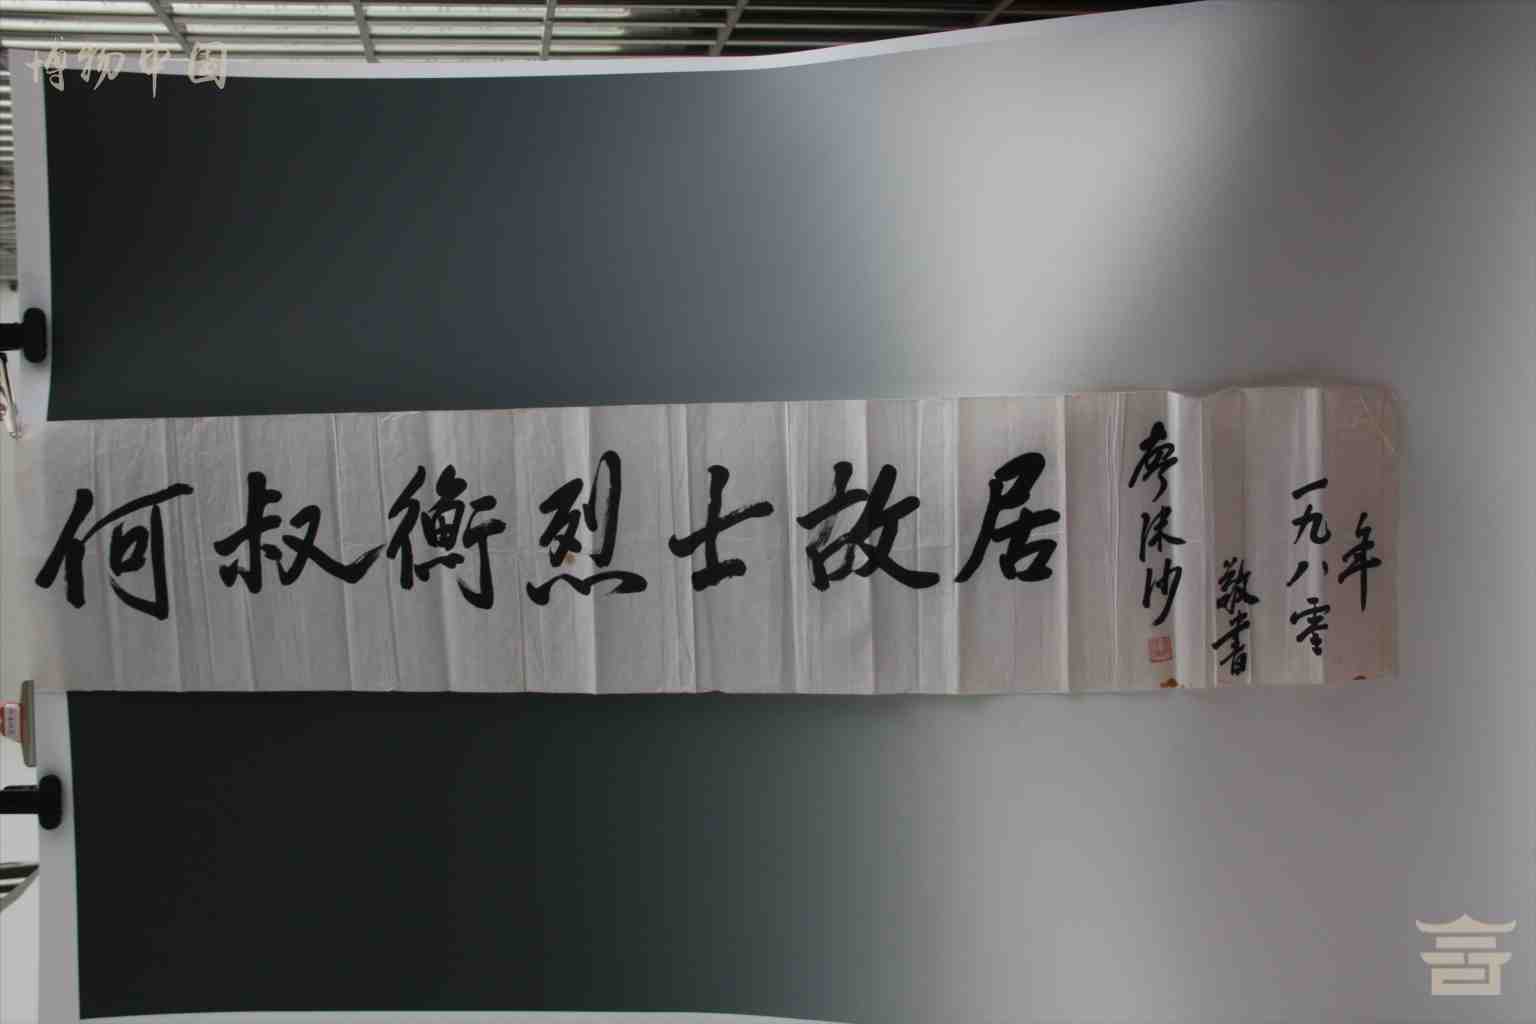 博物中国
何叔衡烈士故居
廖沫沙
敬书
一九八零
年